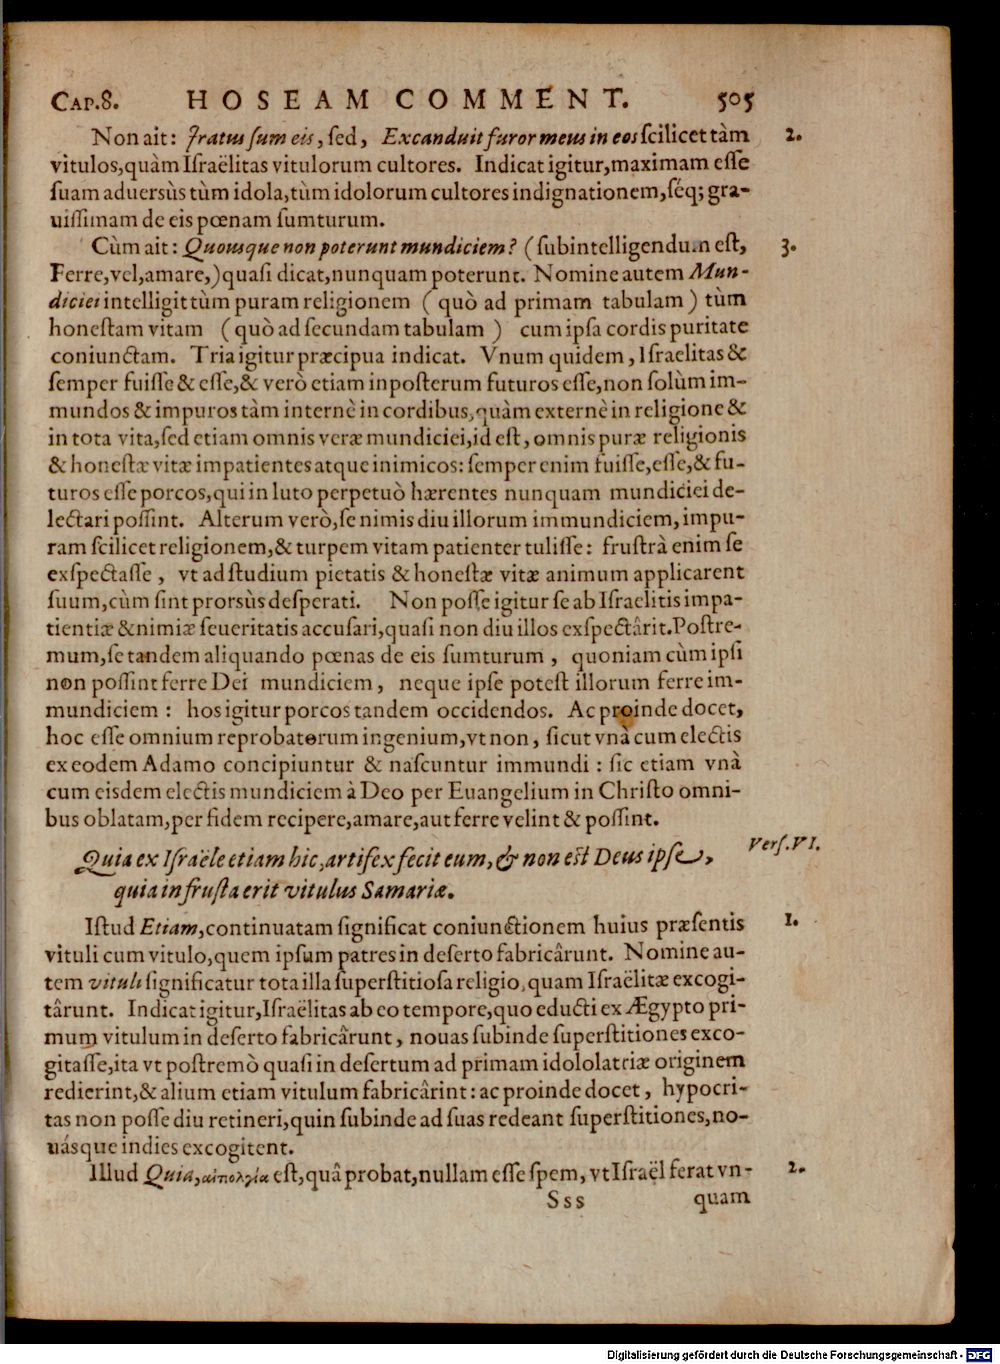 CAP.8. HOSEAM COMMENT. 505
Non ait: Iratus sum eis, sed, Excanduit furor meus in eos scilicet tàm 2.
vitulos, quàm Israëlitas vitulorum cultores. Indicat igitur, maximam esse
suam aduersùs tùm idola, tùm idolorum cultores indignationem, séq; gra-
uissimam de eis pœnam sumturum.
Cùm ait: Quousque non poterunt mundiciem? (subintelligendum est, 3.
Ferre, vel, amare,) quasi dicat, nunquam poterunt. Nomine autem Mun-
diciei intelligit tùm puram religionem (quò ad primam tabulam) tùm
honestam vitam (quò ad secundam tabulam) cum ipsa cordis puritate
coniunctam. Tria igitur præcipua indicat. Vnum quidem, Israelitas &
semper fuisse & esse, & verò etiam in posterum futuros esse, non solùm im-
mundos & impuros tàm internè in cordibus, quàm externè in religione &
in tota vita, sed etiam omnis veræ mundiciei, id est, omnis puræ religionis
& honestæ vitæ impatientes atque inimicos: semper enim fuisse, esse, & fu-
turos esse porcos, qui in luto perpetuò hærentes nunquam mundiciei de-
lectari possint. Alterum verò, se nimis diu illorum immundiciem, impu-
ram scilicet religionem, & turpem vitam patienter tulisse: frustrà enim se
exspectasse, vt ad studium pietatis & honestæ vitæ animum applicarent
suum, cùm sint prorsùs desperati. Non posse igitur se ab Israelitis impa-
tientiæ & nimiæ seueritatis accusari, quasi non diu illos exspectârit. Postre-
mum, se tandem aliquando pœnas de eis sumturum, quoniam cùm ipsi
non possint ferre Dei mundiciem, neque ipse potest illorum ferre im-
mundiciem: hos igitur porcos tandem occidendos. Ac proinde docet,
hoc esse omnium reprobatorum ingenium, vt non, sicut vnà cum electis
ex eodem Adamo concipiuntur & nascuntur immundi: sic etiam vnà
cum eisdem electis mundiciem à Deo per Euangelium in Christo omni-
bus oblatam, per fidem recipere, amare, aut ferre velint & possint.
Quia ex Israële etiam hic, artifex fecit eum, & non est Deus ipse, Vers. VI.
quia in frusta erit vitulus Samariæ.
Istud Etiam, continuatam significat coniunctionem huius præsentis 1.
vituli cum vitulo, quem ipsum patres in deserto fabricârunt. Nomine au-
tem vituli significatur tota illa superstitiosa religio, quam Israëlitæ excogi-
târunt. Indicat igitur, Israëlitas ab eo tempore, quo educti ex Ægypto pri-
mum vitulum in deserto fabricârunt, nouas subinde superstitiones exco-
gitasse, ita vt postremò quasi in desertum ad primam idololatriæ originem
redierint, & alium etiam vitulum fabricârint: ac proinde docet, hypocri-
tas non posse diu retineri, quin subinde ad suas redeant superstitiones, no-
uásque indies excogitent.
Illud Quia, αἰτιολογία est, quâ probat, nullam esse spem, vt Israël ferat vn- 2.
Sss quam
Digitalisierung gefördert durch die Deutsche Forschungsgemeinschaft - DFG